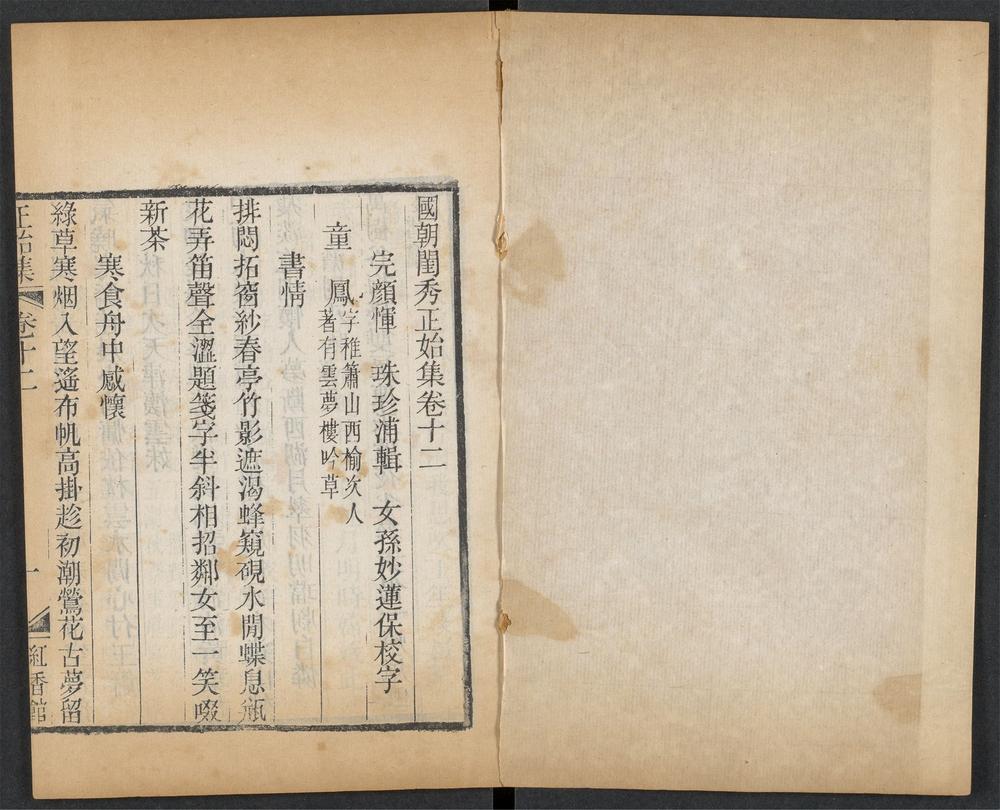 國朝閨秀正始集卷十二
完顏惲 珠珍浦輯 女孫妙蓮保校字
童 鳳 字稚簫山西榆次人
著有雲夢樓吟草
書情
排悶拓窗紗春亭竹影遮渴蜂窺硯水閒蝶息瓶
花弄笛聲全澀題箋字半斜相招鄰女至一笑啜
新茶
寒食舟中感懷
綠草寒烟入望遙布帆高掛趁初潮鶯花古夢留
正始集 卷十二 一 紅香館